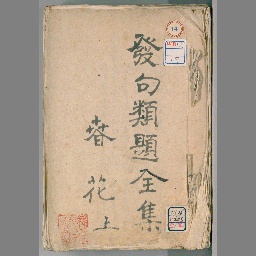 發句類題全集
春花上